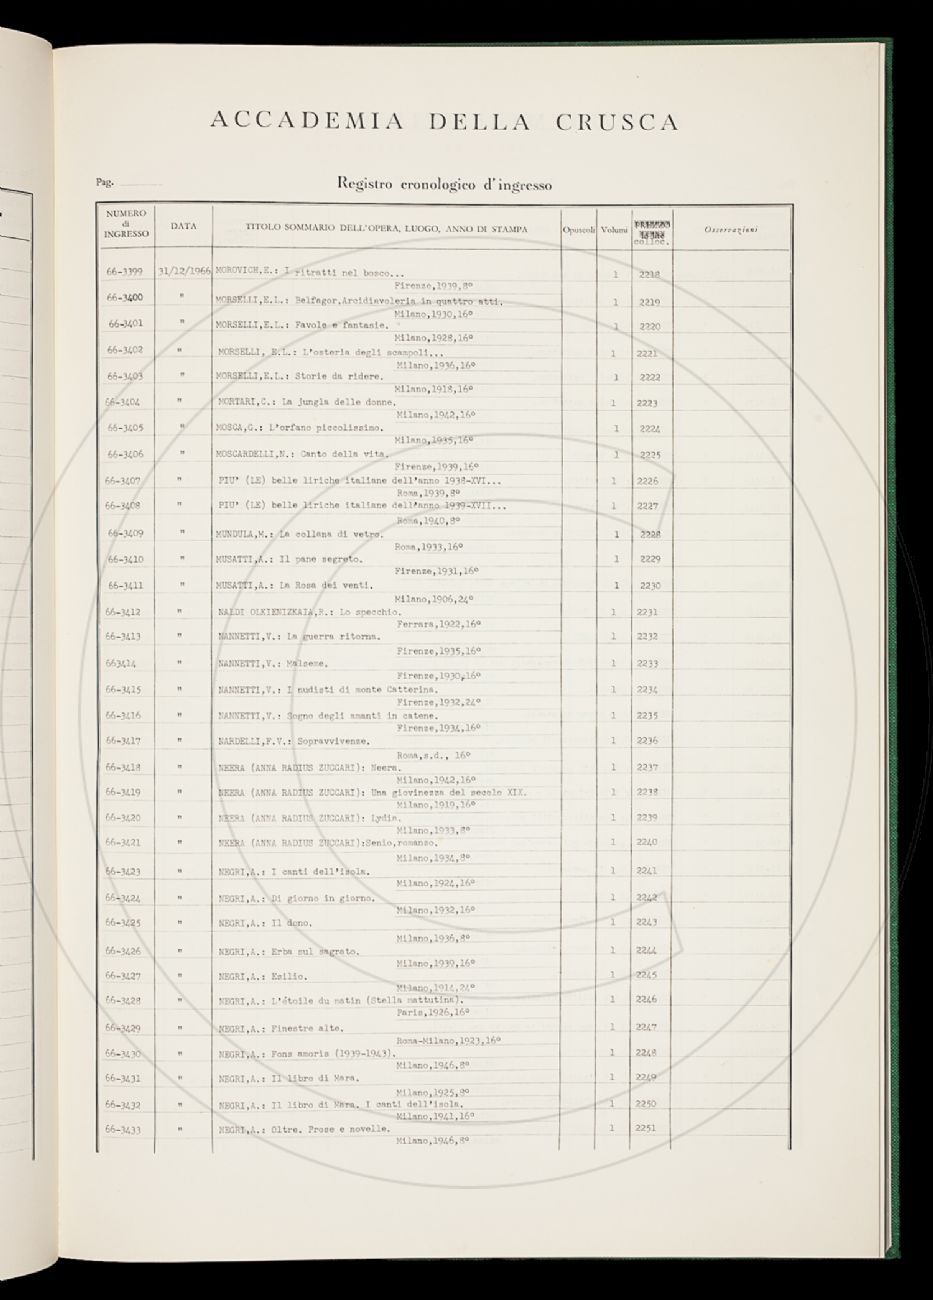 ACCADEMIA DELLA CRUSCA
Pag.
Registro cronologico d'ingresso
NUMERO di INGRESSO DATA TITOLO SOMMARIO DELL'OPERA, LUOGO, ANNO DI STAMPA Opuscoli Volumi colloc. Osservazioni
66-3399 31/12/1966 MOROVICH,E.: I ritratti nel bosco... 1 2218
Firenze,1939,8º
66-3400 " MORSELLI,E.L.: Belfagor,Arcidiavoleria in quattro atti. 1 2219
Milano,1930,16º
66-3401 " MORSELLI,E.L.: Favole e fantasie. 1 2220
Milano,1928,16º
66-3402 " MORSELLI, E.L.: L'osteria degli scampoli... 1 2221
Milano,1936,16º
66-3403 " MORSELLI,E.L.: Storie da ridere. 1 2222
Milano,1918,16º
66-3404 " MORTARI,C.: La jungla delle donne. 1 2223
Milano,1942,16º
66-3405 " MOSCA,G.: L'orfano piccolissimo. 1 2224
Milano,1935,16º
66-3406 " MOSCARDELLI,N.: Canto della vita. 1 2225
Firenze,1939,16º
66-3407 " PIU' (LE) belle liriche italiane dell'anno 1938-XVI... 1 2226
Roma,1939,8º
66-3408 " PIU' (LE) belle liriche italiane dell'anno 1939-XVII... 1 2227
Roma,1940,8º
66-3409 " MUNDULA,M.: La collana di vetro. 1 2228
Roma,1933,16º
66-3410 " MUSATTI,A.: Il pane segreto. 1 2229
Firenze,1931,16º
66-3411 " MUSATTI,A.: La Rosa dei venti. 1 2230
Milano,1906,24º
66-3412 " NALDI OLKIENIZKAIA,R.: Lo specchio. 1 2231
Ferrara,1922,16º
66-3413 " NANNETTI,V.: La guerra ritorna. 1 2232
Firenze,1935,16º
663414 " NANNETTI,V.: Malseme. 1 2233
Firenze,1930,16º
66-3415 " NANNETTI,V.: I nudisti di monte Catterina. 1 2234
Firenze,1932,24º
66-3416 " NANNETTI,V.: Sogno degli amanti in catene. 1 2235
Firenze,1934,16º
66-3417 " NARDELLI,F.V.: Sopravvivenze. 1 2236
Roma,s.d., 16º
66-3418 " NEERA (ANNA RADIUS ZUCCARI): Neera. 1 2237
Milano,1942,16º
66-3419 " NEERA (ANNA RADIUS ZUCCARI): Una giovinezza del secolo XIX. 1 2238
Milano,1919,16º
66-3420 " NEERA (ANNA RADIUS ZUCCARI): Lydia. 1 2239
Milano,1933,8º
66-3421 " NEERA (ANNA RADIUS ZUCCARI):Senio,romanzo. 1 2240
Milano,1934,8º
66-3423 " NEGRI,A.: I canti dell'isola. 1 2241
Milano,1924,16º
66-3424 " NEGRI,A.: Di giorno in giorno. 1 2242
Milano,1932,16º
66-3425 " NEGRI,A.: Il dono. 1 2243
Milano,1936,8º
66-3426 " NEGRI,A.: Erba sul sagrato. 1 2244
Milano,1939,16º
66-3427 " NEGRI,A.: Esilio. 1 2245
Milano,1914,24º
66-3428 " NEGRI,A.: L'étoile du matin (Stella mattutina). 1 2246
Paris,1926,16º
66-3429 " NEGRI,A.: Finestre alte. 1 2247
Roma-Milano,1923,16º
66-3430 " NEGRI,A.: Fons amoris (1939-1943). 1 2248
Milano,1946,8º
66-3431 " NEGRI,A.: Il libro di Mara. 1 2249
Milano,1925,8º
66-3432 " NEGRI,A.: Il libro di Mara. I canti dell'isola. 1 2250
Milano,1941,16º
66-3433 " NEGRI,A.: Oltre. Prose e novelle. 1 2251
Milano,1946,8º